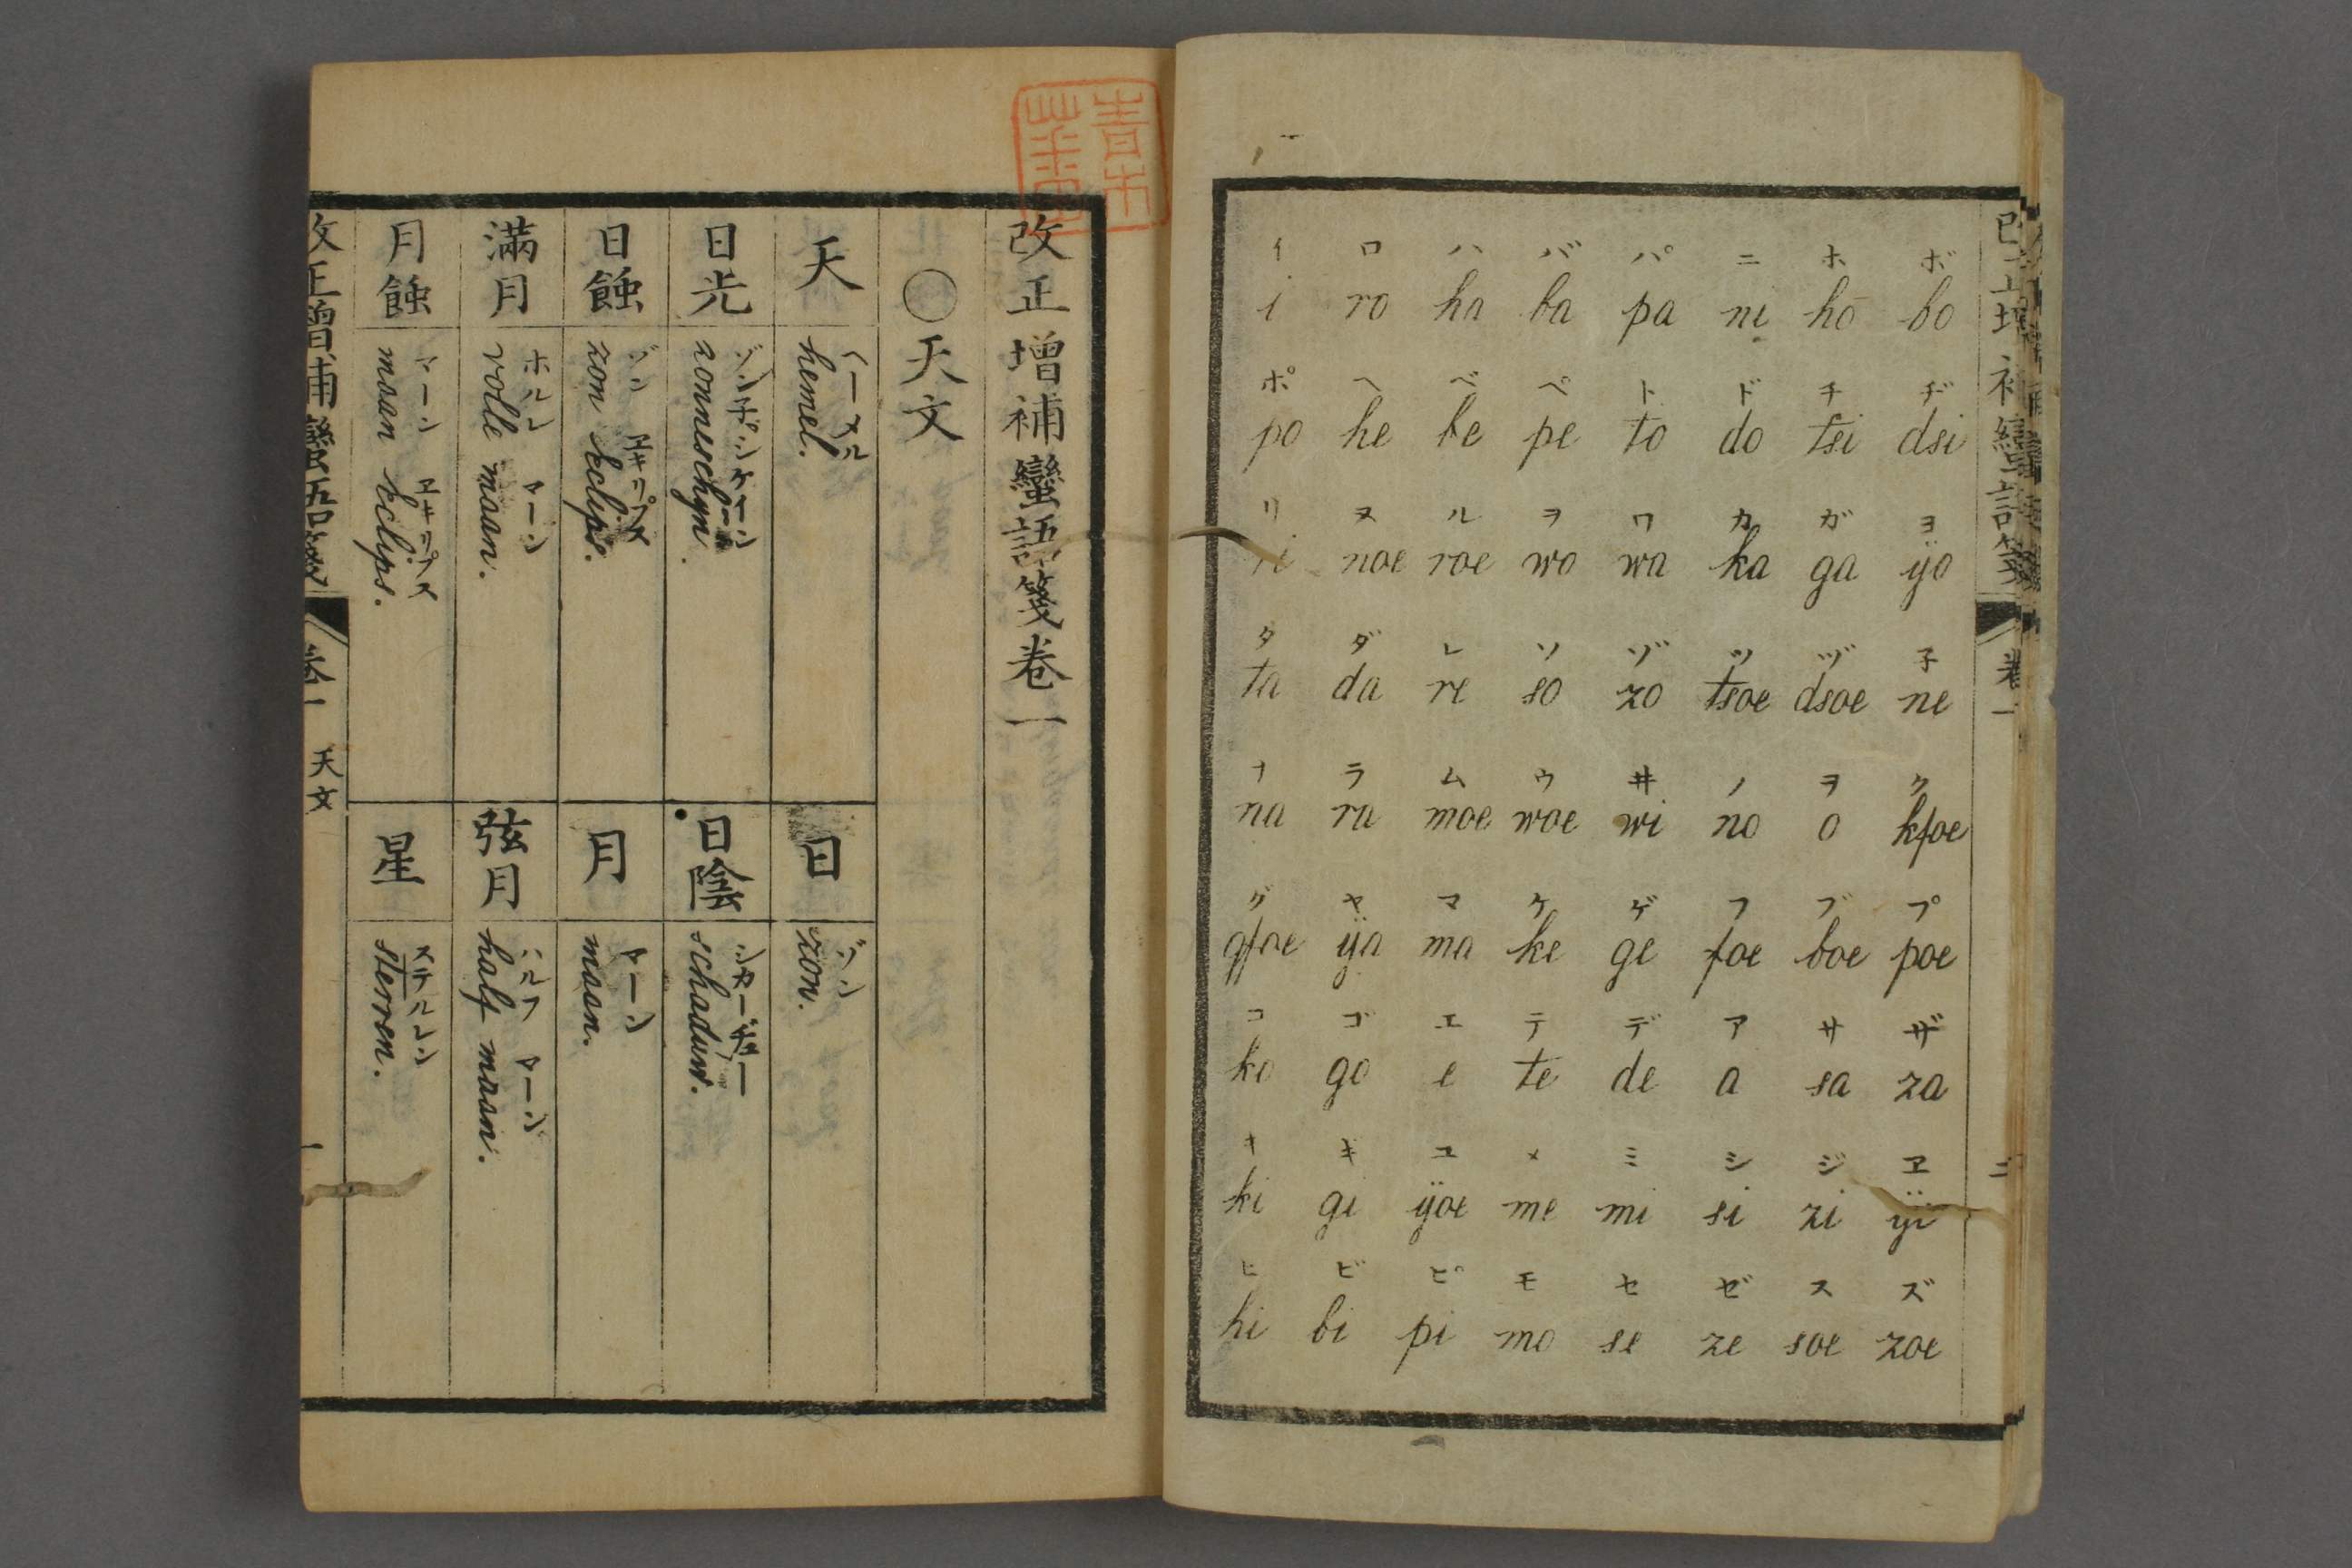 イ ロ ハ バ パ ニ ホ ボ
i ro ha ba pa ni ho bo
ポ ヘ ベ ペ ト ド チ ヂ
po he be pe to do tsi dsi
リ ヌ ル ヲ ワ カ ガ ヨ
ri noe roe wo wa ka ga ÿo
タ ダ レ ソ ゾ ツ ヅ 子
ta da re so zo tsoe dsoe ne
ナ ラ ム ウ ヰ ノ ヲ ク
na ra moe woe wi no o kfoe
グ ヤ マ ケ ゲ フ ブ プ
gfoe ÿa ma ke ge foe boe poe
コ ゴ エ テ デ ア サ ザ
ko go e te de a sa za
キ ギ ユ メ ミ シ ジ ヱ
ki gi ÿoe me mi si zi ÿi
ヒ ビ ピ モ セ ゼ ス ズ
hi bi pi mo se ze soe zoe
改正增補蠻語箋卷一
○天文
天
ヘーメル
hemel.
日
ゾン
zon.
日光
ゾン子シケーン
zonneschyn.
日陰
schaduw.
日蝕
ゾン ヱキリプス
zon eclips.
月
マーン
maan.
滿月
ホルレ マーン
volle maan.
弦月
ハルフ マーン
half maan.
月蝕
マーン ヱキリプス
maan eclips.
星
ステルレン
sterren.
改正增補蠻語箋 卷一 天文 一